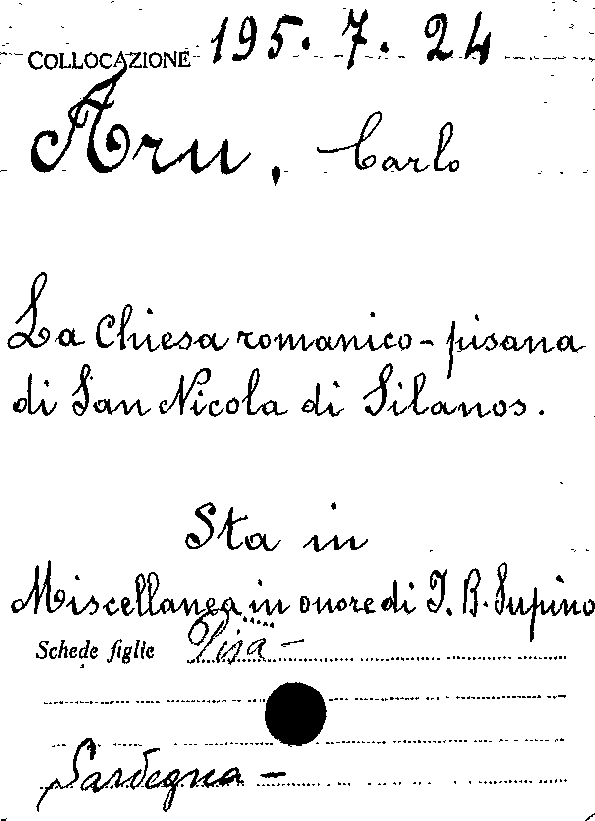 COLLOCAZIONE 195. 7. 24
Aru, Carlo
La Chiesa romanico-pisana
di San Nicola di Silanos.
Sta in
Miscellanea in onore di I. B. Supino
Schede figlie Pisa -
Sardegna -